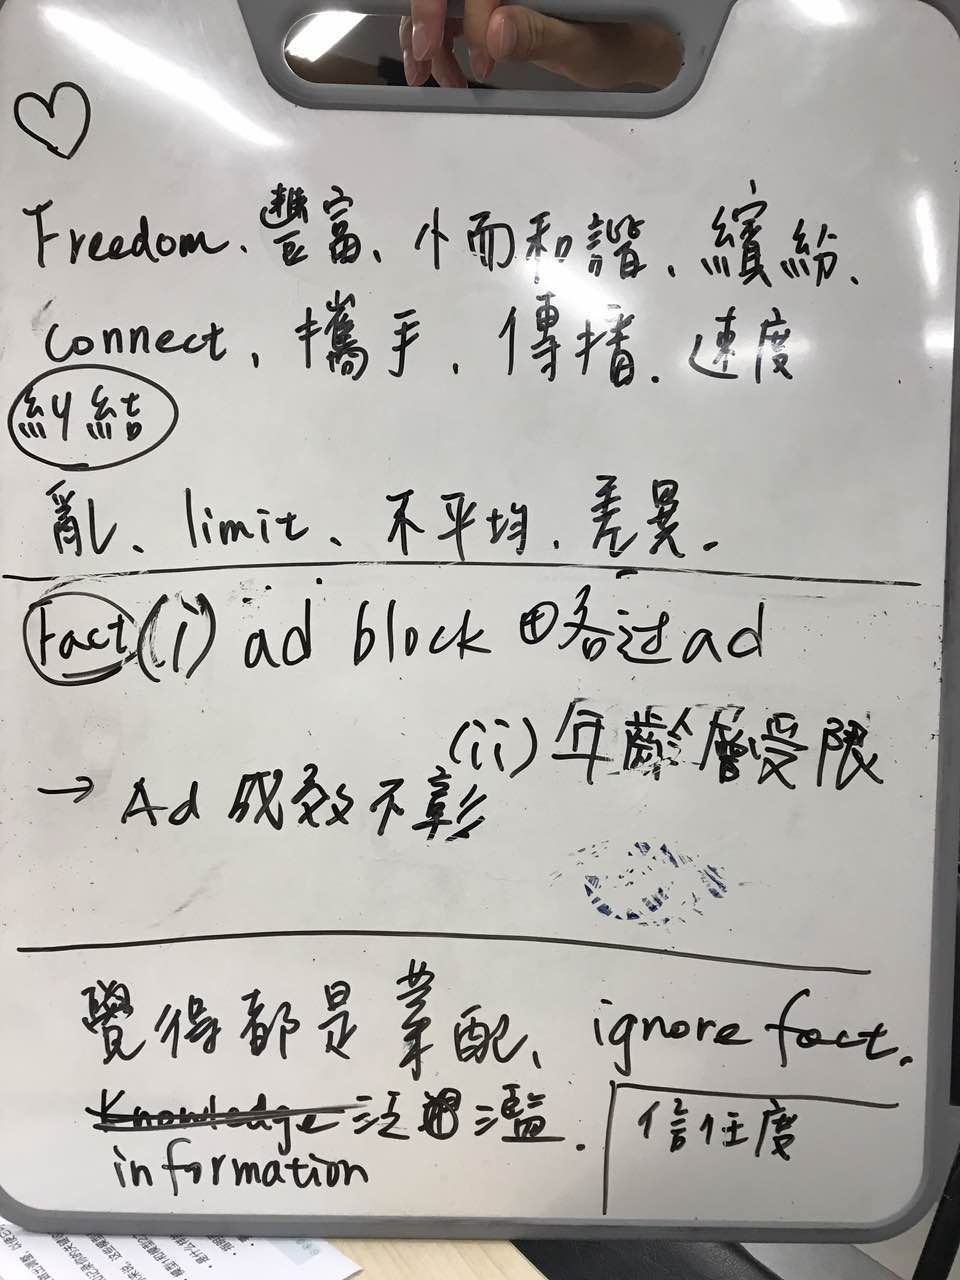 Freedom、豐富、小而和諧、繽紛、
connect、攜手、傳播、速度
糾結
亂、limit、不平均、差異。
Fact (i) ad block 略过 ad
(ii) 年齡層受限
→ Ad 成效不彰
覺得都是業配、ignore fact.
Knowledge 泛濫.
information
信任度